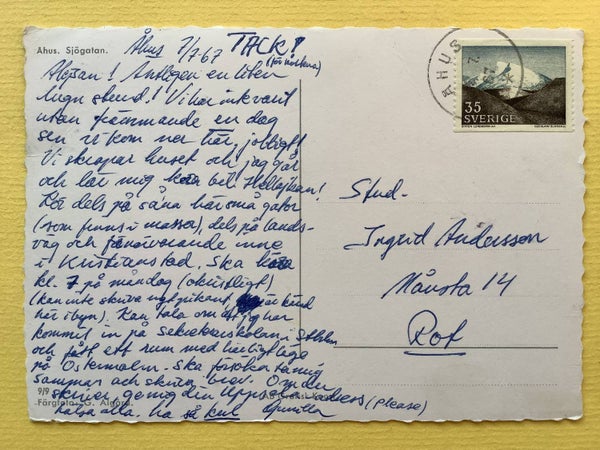 Åhus. Sjögatan.
Åhus 7/7-67 TACK!
(för korten)
Hejsan! Äntligen en liten
lugn stund! Vi har inte varit
utan främmande en dag
sen vi kom ner här, jobbigt!
Vi skrapar huset och jag går
och lär mig köra bil. Hellejsan!
Kör dels på såna här små gator
(som finns i massor), dels på lands-
väg och fanärvarande inne
i Kristianstad. Ska köra
kl. 7 på måndag (okristligt)
(kan inte skriva nåt är känd
här i byn). Kan tala om att jag har
kommit in på Sekreterarskolan i Sthlm
och fått ett rum med härligt läge
på Östermalm. Ska försöka ta mig
samman och skriva brev. Om du
skriver ge mig din Uppsala-adress (Please)
hälsa alla. ha så kul Gunilla
9/9
Färgfoto: G. Algård.
Stud.
Ingrid Andersson
Månsta 14
Rot
ÅHUS
35
SVERIGE